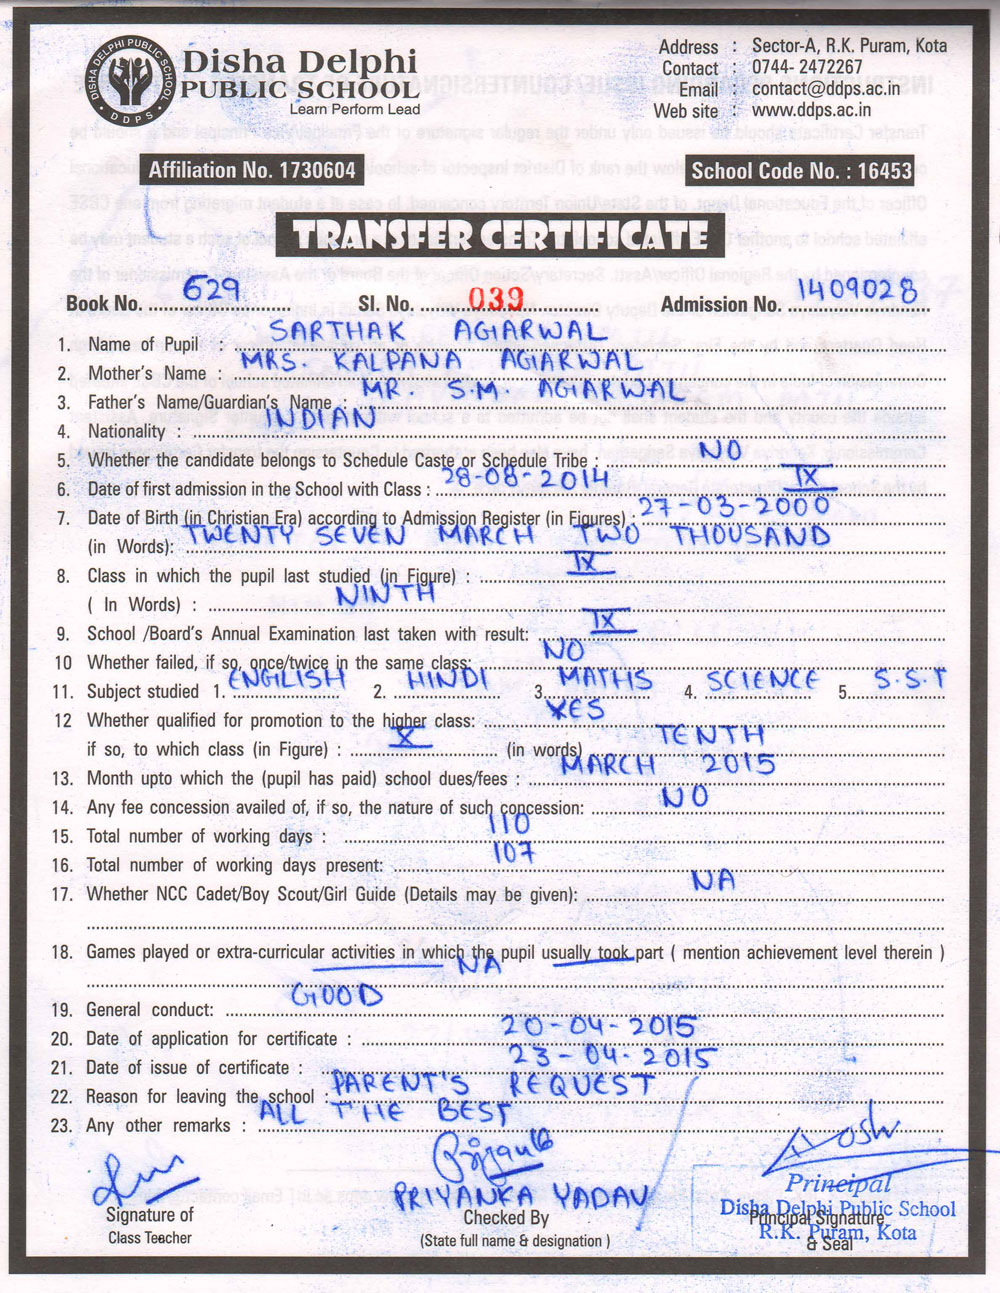 DISHA DELPHI PUBLIC SCHOOL
DDPS
Disha Delphi
PUBLIC SCHOOL
Learn Perform Lead
Address : Sector-A, R.K. Puram, Kota
Contact : 0744- 2472267
Email : contact@ddps.ac.in
Web site : www.ddps.ac.in
Affiliation No. 1730604
School Code No. : 16453
TRANSFER CERTIFICATE
Book No. 629 Sl. No. 039 Admission No. 1409028
1. Name of Pupil : SARTHAK AGARWAL
2. Mother's Name : MRS. KALPANA AGARWAL
3. Father's Name/Guardian's Name : MR. S.M. AGARWAL
4. Nationality : INDIAN
5. Whether the candidate belongs to Schedule Caste or Schedule Tribe : NO
6. Date of first admission in the School with Class : 28-08-2014 IX
7. Date of Birth (in Christian Era) according to Admission Register (in Figures) : 27-03-2000
(in Words): TWENTY SEVEN MARCH TWO THOUSAND
8. Class in which the pupil last studied (in Figure) : IX
( In Words) : NINTH
9. School /Board's Annual Examination last taken with result: IX
10 Whether failed, if so, once/twice in the same class: NO
11. Subject studied 1. ENGLISH 2. HINDI 3. MATHS 4. SCIENCE 5. S.S.T
12 Whether qualified for promotion to the higher class: YES
if so, to which class (in Figure) : X (in words) TENTH
13. Month upto which the (pupil has paid) school dues/fees : MARCH 2015
14. Any fee concession availed of, if so, the nature of such concession: NO
15. Total number of working days : 110
16. Total number of working days present: 107
17. Whether NCC Cadet/Boy Scout/Girl Guide (Details may be given): NA
18. Games played or extra-curricular activities in which the pupil usually took part ( mention achievement level therein )
NA
19. General conduct: GOOD
20. Date of application for certificate : 20-04-2015
21. Date of issue of certificate : 23-04-2015
22. Reason for leaving the school : PARENT'S REQUEST
23. Any other remarks : ALL THE BEST
PRIYANKA YADAV
Principal
Disha Delphi Public School
R.K. Puram, Kota
Signature of
Class Teacher
Checked By
(State full name & designation )
Principal Signature
& Seal